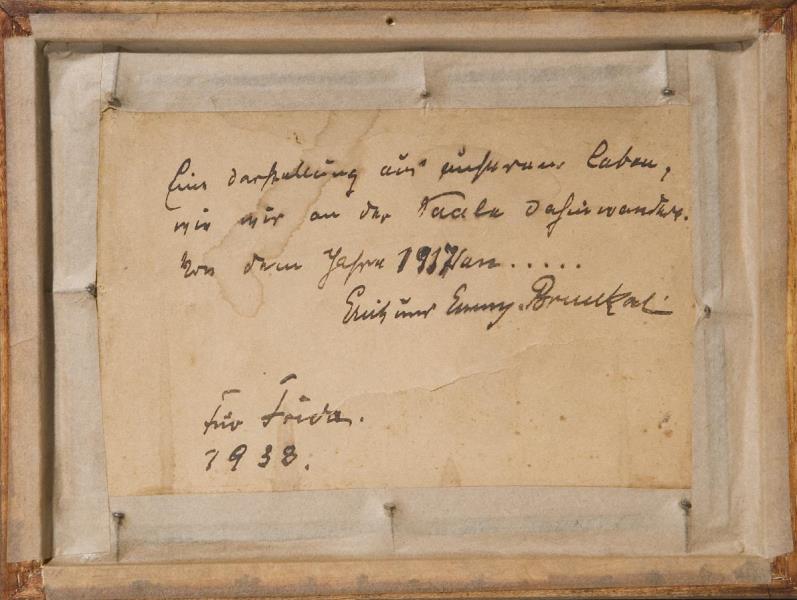 Eine Darstellung aus unserem Leben,
wie wir an der Saale dahinwandern.
Von dem Jahre 1917 an.....
Erich und Emmy
Für Frida.
1938.